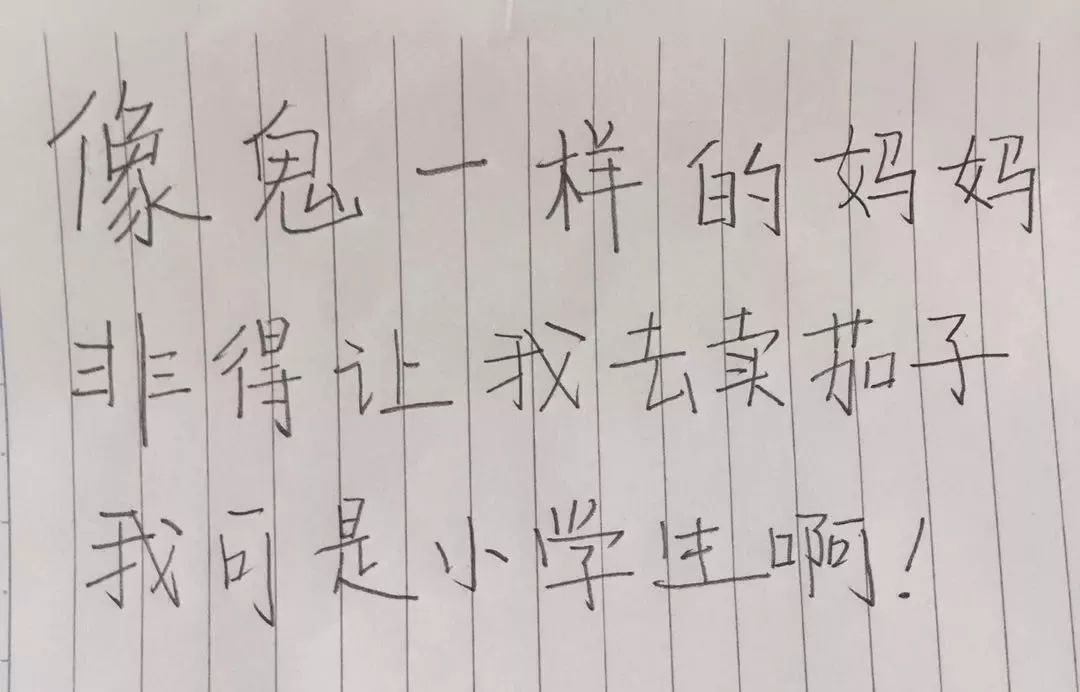 像鬼一样的妈妈
非得让我去卖茄子
我可是小学生啊！